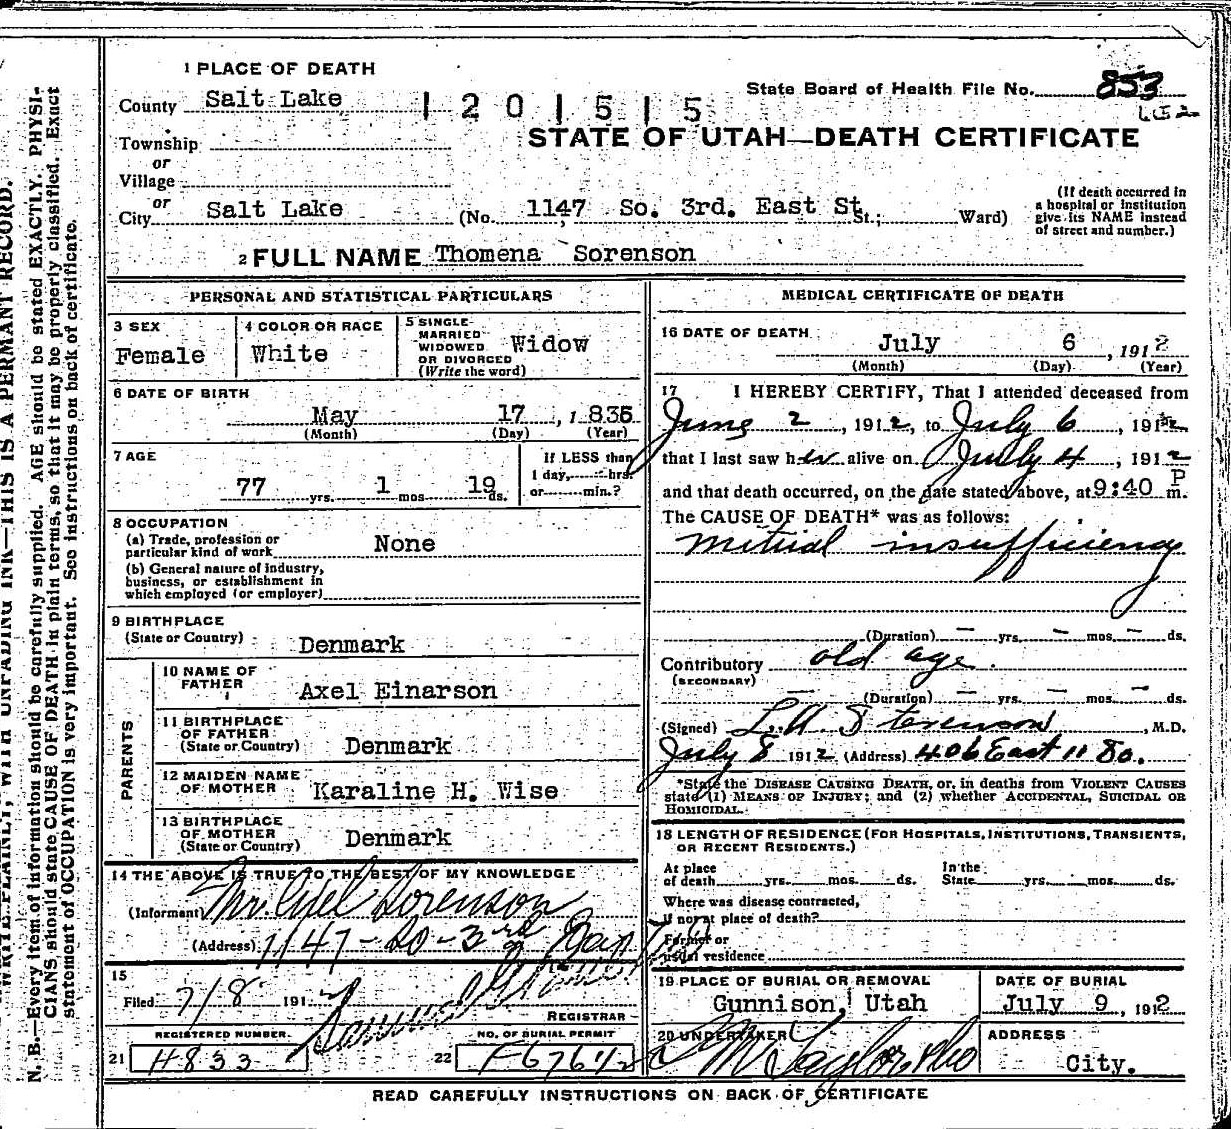 1 PLACE OF DEATH
County Salt Lake
1201515
State Board of Health File No. 853
STATE OF UTAH—DEATH CERTIFICATE
Township
or
Village
or
City Salt Lake (No. 1147 So. 3rd. East St. St.; Ward)
(If death occurred in a hospital or institution give its NAME instead of street and number.)
2 FULL NAME Thomena Sorenson
PERSONAL AND STATISTICAL PARTICULARS
3 SEX Female
4 COLOR OR RACE White
5 SINGLE MARRIED WIDOWED OR DIVORCED (Write the word) Widow
6 DATE OF BIRTH
May 17, 1835
(Month) (Day) (Year)
7 AGE
77 yrs. 1 mos. 19 ds.
If LESS than 1 day, hrs. or min.?
8 OCCUPATION
(a) Trade, profession or particular kind of work None
(b) General nature of industry, business, or establishment in which employed (or employer)
9 BIRTHPLACE
(State or Country) Denmark
PARENTS
10 NAME OF FATHER Axel Einarson
11 BIRTHPLACE OF FATHER (State or Country) Denmark
12 MAIDEN NAME OF MOTHER Karaline H. Wise
13 BIRTHPLACE OF MOTHER (State or Country) Denmark
14 THE ABOVE IS TRUE TO THE BEST OF MY KNOWLEDGE
(Informant) Mr. Sorenson
(Address) 1147-So-3rd
15
Filed 7/8 191
REGISTRAR
REGISTERED NUMBER.
21 H833
NO. OF BURIAL PERMIT
22 F6764½
MEDICAL CERTIFICATE OF DEATH
16 DATE OF DEATH
July 6, 1912
(Month) (Day) (Year)
17 I HEREBY CERTIFY, That I attended deceased from
June 2, 1912, to July 6, 1912
that I last saw her alive on July 4, 1912
and that death occurred, on the date stated above, at 9:40 P m.
The CAUSE OF DEATH* was as follows:
mitrial insufficiency
(Duration) — yrs. — mos. — ds.
Contributory old age.
(SECONDARY)
(Duration) — yrs. — mos. — ds.
(Signed) L.A. Stevenson, M.D.
July 8 1912 (Address) 406 East 11 So.
*State the DISEASE CAUSING DEATH, or, in deaths from VIOLENT CAUSES
state (1) MEANS OF INJURY; and (2) whether ACCIDENTAL, SUICIDAL OR
HOMICIDAL.
18 LENGTH OF RESIDENCE (FOR HOSPITALS, INSTITUTIONS, TRANSIENTS,
OR RECENT RESIDENTS.)
At place of death yrs. mos. ds. In the State yrs. mos. ds.
Where was disease contracted,
if not at place of death?
Former or
usual residence
19 PLACE OF BURIAL OR REMOVAL
Gunnison, Utah
DATE OF BURIAL
July 9, 1912
20 UNDERTAKER
ADDRESS
City.
READ CAREFULLY INSTRUCTIONS ON BACK OF CERTIFICATE
WRITE PLAINLY, WITH UNFADING INK—THIS IS A PERMANT RECORD.
N. B.—Every item of information should be carefully supplied. AGE should be stated EXACTLY. PHYSI-
CIANS should state CAUSE OF DEATH in plain terms, so that it may be properly classified. Exact
statement of OCCUPATION is very important. See instructions on back of certificate.